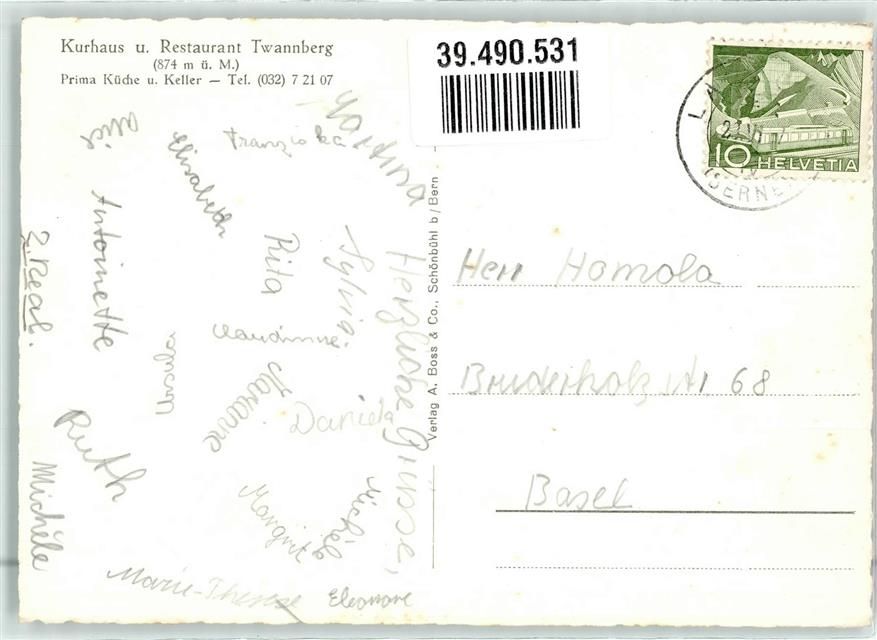 Kurhaus u. Restaurant Twannberg
(874 m ü. M.)
Prima Küche u. Keller — Tel. (032) 7 21 07
39.490.531
10 HELVETIA
(BERNE)
Verlag A. Boss & Co., Schönbühl b/Bern
Herr Homola
Bruderholz 68
Basel
Herzliche Grüsse,
Martina
Franziska
Elisabeth
Antoinette
2. Real.
Rita
Sylvia
Claudinne
Ursula
Marianne
Daniela
Ruth
Michèle
Margrit
Michèle
Marie-Therese
Eleonore